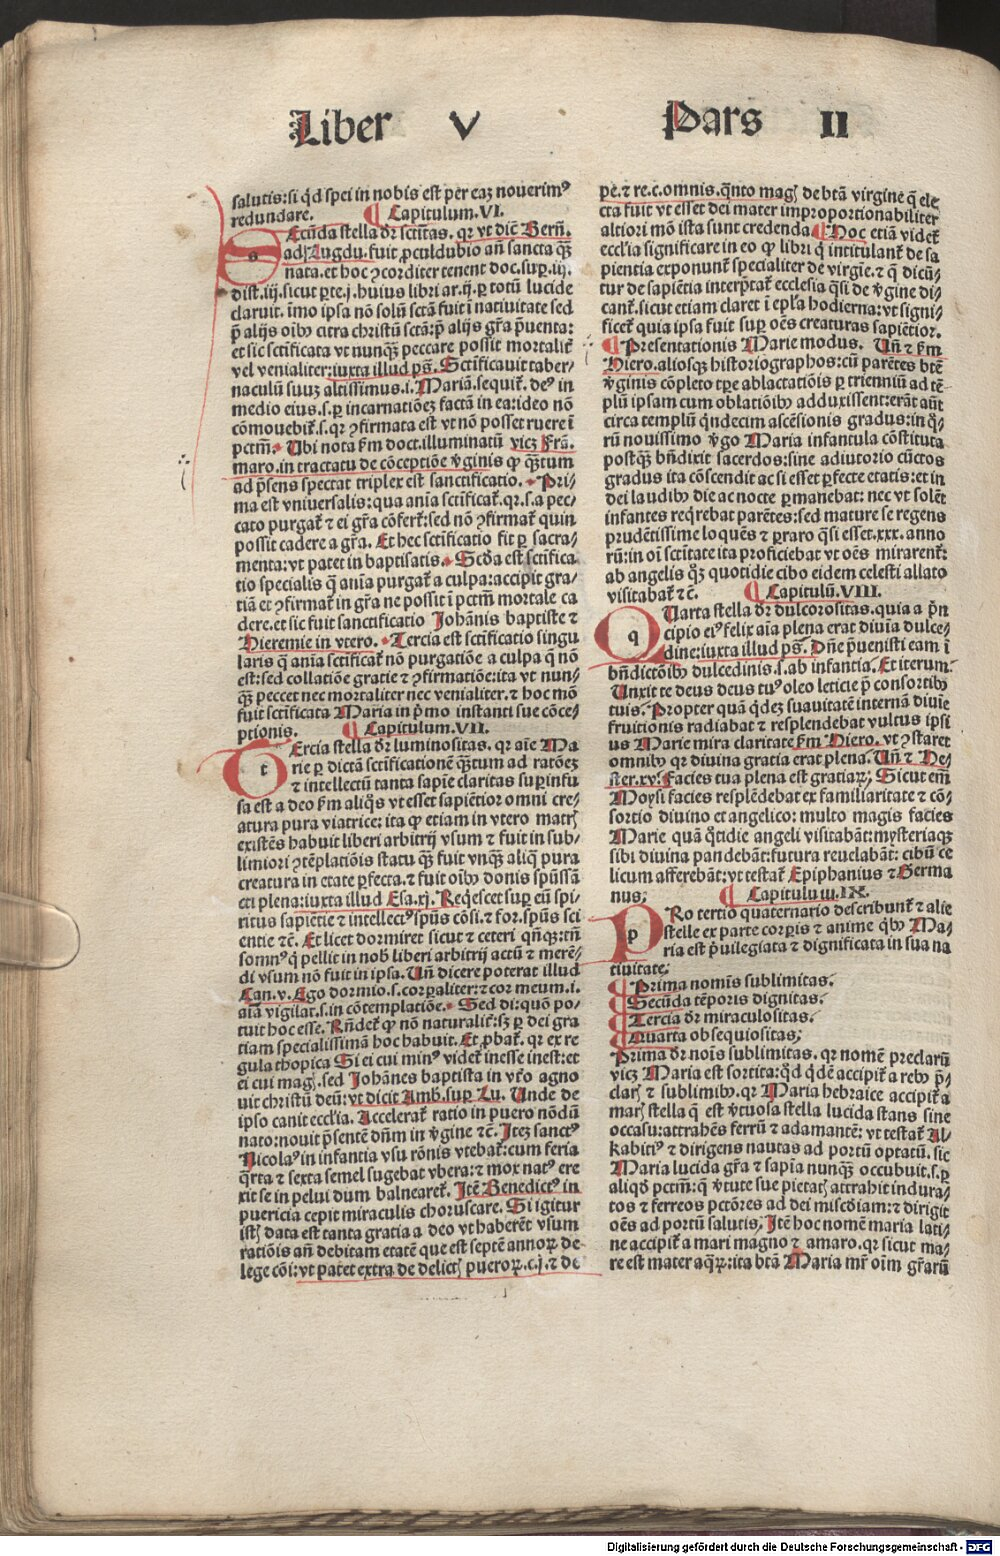 Liber V Pars II
salutis: si qd spei in nobis est per eaz nouerimꝰ
redundare. ¶ Capitulum.VI.
SEcūda stella dr̄ sctitas. qr vt dic̄ Bern̄.
ad Lugdu. fuit ꝓculdubio an̄ sancta qꝫ
nata. et hoc ꝯcorditer tenent doc. suꝑ .iij.
dist.iij. sicut ꝑte.j. huius libri ar.ij. ꝑ totū lucide
claruit. īmo ipsa nō solū sctā fuit ī natiuitate sed
p̄ alijs oībꝰ citra christū sctā: p̄ alijs gr̄a p̄uenta:
et sic sctificata vt nunqꝫ peccare possit mortalit̄
vel venialiter: iuxta illud ps̄. Sctificauit taber-
naculū suuz altissimus .i. Mariā. sequit̄. deꝰ in
medio eius .s. ꝑ incarnatiōez factā in ea: ideo nō
cōmouebit̄ .s. qr ꝯfirmata est vt nō posset ruere ī
pctm̄. Ubi nota ẜm doct. illuminatū vicz Frā.
maro. in tractatu de cōceptiōe v̄ginis ꝙ qꝫtum
ad p̄sens spectat triplex est sanctificatio. Pri-
ma est vniuersalis: qua anīa sctificat̄. qr .s. a pec-
cato purgat̄ ⁊ ei gr̄a cōfert̄: sed nō ꝯfirmat̄ quin
possit cadere a gr̄a. Et hec sctificatio fit ꝑ sacra-
menta: vt patet in baptisatis. Scd̄a est sctifica-
tio specialis q̄ anīa purgat̄ a culpa: accipit gra-
tiā et ꝯfirmat̄ in gr̄a ne possit ī pctm̄ mortale ca
dere. et sic fuit sanctificatio Johānis baptiste ⁊
Hieremie in vtero. Tercia est sctificatio singu
laris q̄ anīa sctificat̄ nō purgatiōe a culpa q̄ nō
est: sed collatiōe gratie ⁊ ꝯfirmatiōe: ita vt nun-
qꝫ peccet nec mortaliter nec venialiter. ⁊ hoc mō
fuit sctificata Maria in p̄mo instanti sue cōce-
ptionis. ¶ Capitulum.VII.
TErcia stella dr̄ luminositas. qr aīe Ma
rie ꝑ dictā sctificationē qꝫtum ad ratōez
⁊ intellectū tanta sapīe claritas suꝑinfu
sa est a deo ẜm aliqs vt esset sapiētior omni cre-
atura pura viatrice: ita ꝙ etiam in vtero matrꝭ
existēs habuit liberi arbitrij vsum ⁊ fuit in sub-
limiori ꝯtēplatiōis statu qꝫ fuit vnqꝫ aliq̄ pura
creatura in etate ꝑfecta. ⁊ fuit oībꝰ donis spūssā
cti plena: iuxta illud Esa.xj. Reqescet suꝑ eū spi-
ritus sapiētie ⁊ intellectꝰ spūs cōsi. ⁊ for. spūs sci
entie ⁊c̄. Et licet dormiret sicut ⁊ ceteri qn̄qꝫ: tn̄
somnꝰ q̄ pellit in nobꝭ liberi arbitrij actū ⁊ merē-
di vsum nō fuit in ipsa. Un̄ dicere poterat illud
Can.v. Ego dormio .s. corꝑaliter: ⁊ cor meum .i.
aīa vigilat .s. in cōtemplatiōe. Sed di: quō po-
tuit hoc esse. Rn̄det̄ ꝙ nō naturalit̄: sꝫ ꝑ dei gra
tiam specialissimā hoc habuit. Et ꝓbat̄. qr ex re
gula thopica Si ei cui minꝰ videt̄ inesse inest: et
ei cui magꝭ. sed Johānes baptista in vt̄o agno
uit christū deū: vt dicit Amb. suꝑ Lu. Unde de
ipso canit eccl̄ia. Accelerat̄ ratio in puero nōdū
nato: nouit p̄sentē dn̄m in v̄gine ⁊c̄. Itez sanctꝰ
Nicolaꝰ in infantia vsu rōnis vtebat̄: cum feria
q̄rta ⁊ sexta semel sugebat vbera: ⁊ mox natꝰ ere
xit se in pelui dum balnearet̄. Itē Benedictꝰ in
puericia cepit miraculis choruscare. Si igitur
istꝭ data est tanta gratia a deo vt haberēt vsum
ratiōis an̄ debitam etatē que est septē annoꝝ de-
lege cōi: vt patet extra de delictꝭ pueroꝝ .c.j. ⁊ de
pe. ⁊ re.c. omnis. qn̄to magꝭ de btā virgine q̄ ele
cta fuit vt esset dei mater improportionabiliter
altiori mō ista sunt credenda ¶ Hoc etiā videt̄
eccl̄ia significare in eo ꝙ libri q̄ intitulant̄ de sa
pientia exponunt̄ specialiter de virgīe. ⁊ q̄ dicū-
tur de sapiētia interp̄tat̄ ecclesia q̄si de v̄gine di-
cant̄. sicut etiam claret ī epl̄a hodierna: vt signi-
ficet̄ quia ipsa fuit suꝑ oēs creaturas sapiētior.
¶ Presentationis Marie modus. Un̄ ⁊ ẜm
Hiero. aliosqꝫ historiographos: cū parētes btē
v̄ginis cōpleto tꝑe ablactatiōis ꝑ trienniū ad tē-
plū ipsam cum oblatiōibꝰ adduxissent: erāt aūt
circa templū qndecim ascēsionis gradus: in q̄-
rū nouissimo v̄go Maria infantula cōstituta
postqꝫ bn̄dixit sacerdos: sine adiutorio cūctos
gradus ita cōscendit ac si esset ꝑfecte etatis: et in
dei laudibꝰ die ac nocte ꝑmanebat: nec vt solēt
infantes reqrebat parētes: sed mature se regens
prudētissime loquēs ⁊ ꝑraro q̄si esset .xxx. anno
rū: in oī sctitate ita proficiebat vt oēs mirarent̄:
ab angelis qꝫ quotidie cibo eidem celesti allato
visitabat̄ ⁊c̄. ¶ Capitulū.VIII.
QUarta stella dr̄ dulcorositas. quia a p̄n
cipio eiꝰ felix aīa plena erat diuīa dulce-
dine: iuxta illud ps̄. Dn̄e p̄uenisti eam ī
bn̄dictōibꝰ dulcedinis .s. ab infantia. Et iterum
Unxit te deus deus tuꝰ oleo leticie p̄ consortibꝰ
tuis. Propter quā qdez suauitatē internā diuīe
fruitionis radiabat ⁊ resplendebat vultus ipsi
us Marie mira claritate ẜm Hiero. vt ꝯstaret
omnibꝰ qr diuina gratia erat plena. Un̄ ⁊ He-
ster.xv. Facies tua plena est gratiaꝝ; Sicut em̄
Moysi facies resplēdebat ex familiaritate ⁊ cō-
sortio diuino et angelico: multo magis facies
Marie quā q̄tidie angeli visitabāt: mysteriaqꝫ
sibi diuina pandebāt: futura reuelabāt: cibū ce
licum afferebāt: vt testat̄ Epiphanius ⁊ Germa
nus; ¶ Capitulū.IX.
PRo tertio quaternario describunt̄ ⁊ alie
stelle ex parte corꝑis ⁊ anime qbꝰ Ma-
ria est p̄uilegiata ⁊ dignificata in sua na
tiuitate;
¶ Prima nomīs sublimitas.
¶ Secūda tēporis dignitas.
¶ Tercia dr̄ miraculositas.
¶ Quarta obsequiositas;
Prima dr̄ noīs sublimitas. qr nomē preclarū
vicz Maria est sortita: qd qdē accipit̄ a rebꝰ p̄-
clarꝭ ⁊ sublimibꝰ. qr Maria hebraice accipit̄ a
marꝭ stella q̄ est v̄tuosa stella lucida stans sine
occasu: attrahēs ferrū ⁊ adamantē: vt testat̄ Al-
kabitiꝰ ⁊ dirigens nautas ad portū optatū. sic
Maria lucida gr̄a ⁊ sapīa nunqꝫ occubuit .s. ꝑ
aliqd pctm̄: q̄ v̄tute sue pietatꝭ attrahit indura-
tos ⁊ ferreos pctōres ad dei miscd̄iam: ⁊ dirigit
oēs ad portū salutis; Itē hoc nomē maria lati-
ne accipit̄ a mari magno ⁊ amaro. qr sicut ma-
re est mater aq̄ꝝ: ita btā Maria mr̄ oīm gr̄arū
Digitalisierung gefördert durch die Deutsche Forschungsgemeinschaft - DFG